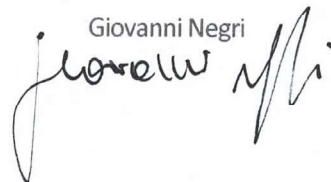 Giovanni Negri
Giovanni Negri